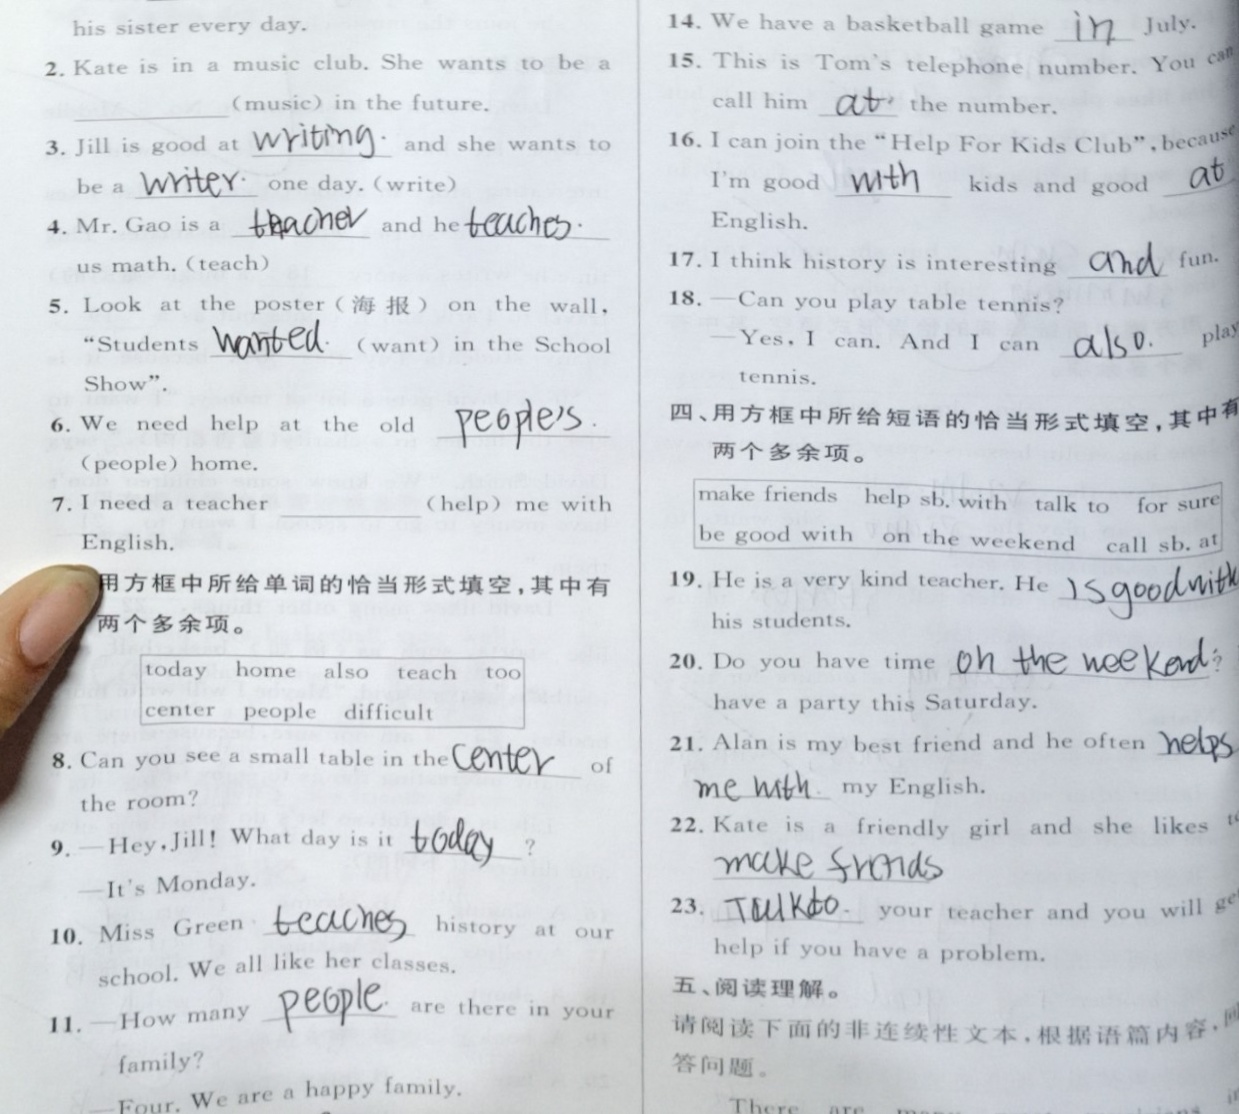 his sister every day.
2. Kate is in a music club. She wants to be a
________ (music) in the future.
3. Jill is good at writing. and she wants to
be a writer. one day. (write)
4. Mr. Gao is a teacher and he teaches.
us math. (teach)
5. Look at the poster (海报) on the wall,
“Students wanted. (want) in the School
Show”.
6. We need help at the old people's.
(people) home.
7. I need a teacher ________ (help) me with
English.
用方框中所给单词的恰当形式填空,其中有
两个多余项。
today home also teach too
center people difficult
8. Can you see a small table in the center of
the room?
9. —Hey, Jill! What day is it today ?
—It's Monday.
10. Miss Green teaches history at our
school. We all like her classes.
11. —How many people. are there in your
family?
—Four. We are a happy family.
14. We have a basketball game in July.
15. This is Tom's telephone number. You can
call him at. the number.
16. I can join the “Help For Kids Club”, because
I'm good with kids and good at
English.
17. I think history is interesting and fun.
18. —Can you play table tennis?
—Yes, I can. And I can also. play
tennis.
四、用方框中所给短语的恰当形式填空,其中有
两个多余项。
make friends help sb. with talk to for sure
be good with on the weekend call sb. at
19. He is a very kind teacher. He is good with
his students.
20. Do you have time on the weekend?
have a party this Saturday.
21. Alan is my best friend and he often helps
me with. my English.
22. Kate is a friendly girl and she likes to
make frends
23. Talk to. your teacher and you will get
help if you have a problem.
五、阅读理解。
请阅读下面的非连续性文本,根据语篇内容,回
答问题。
There are many